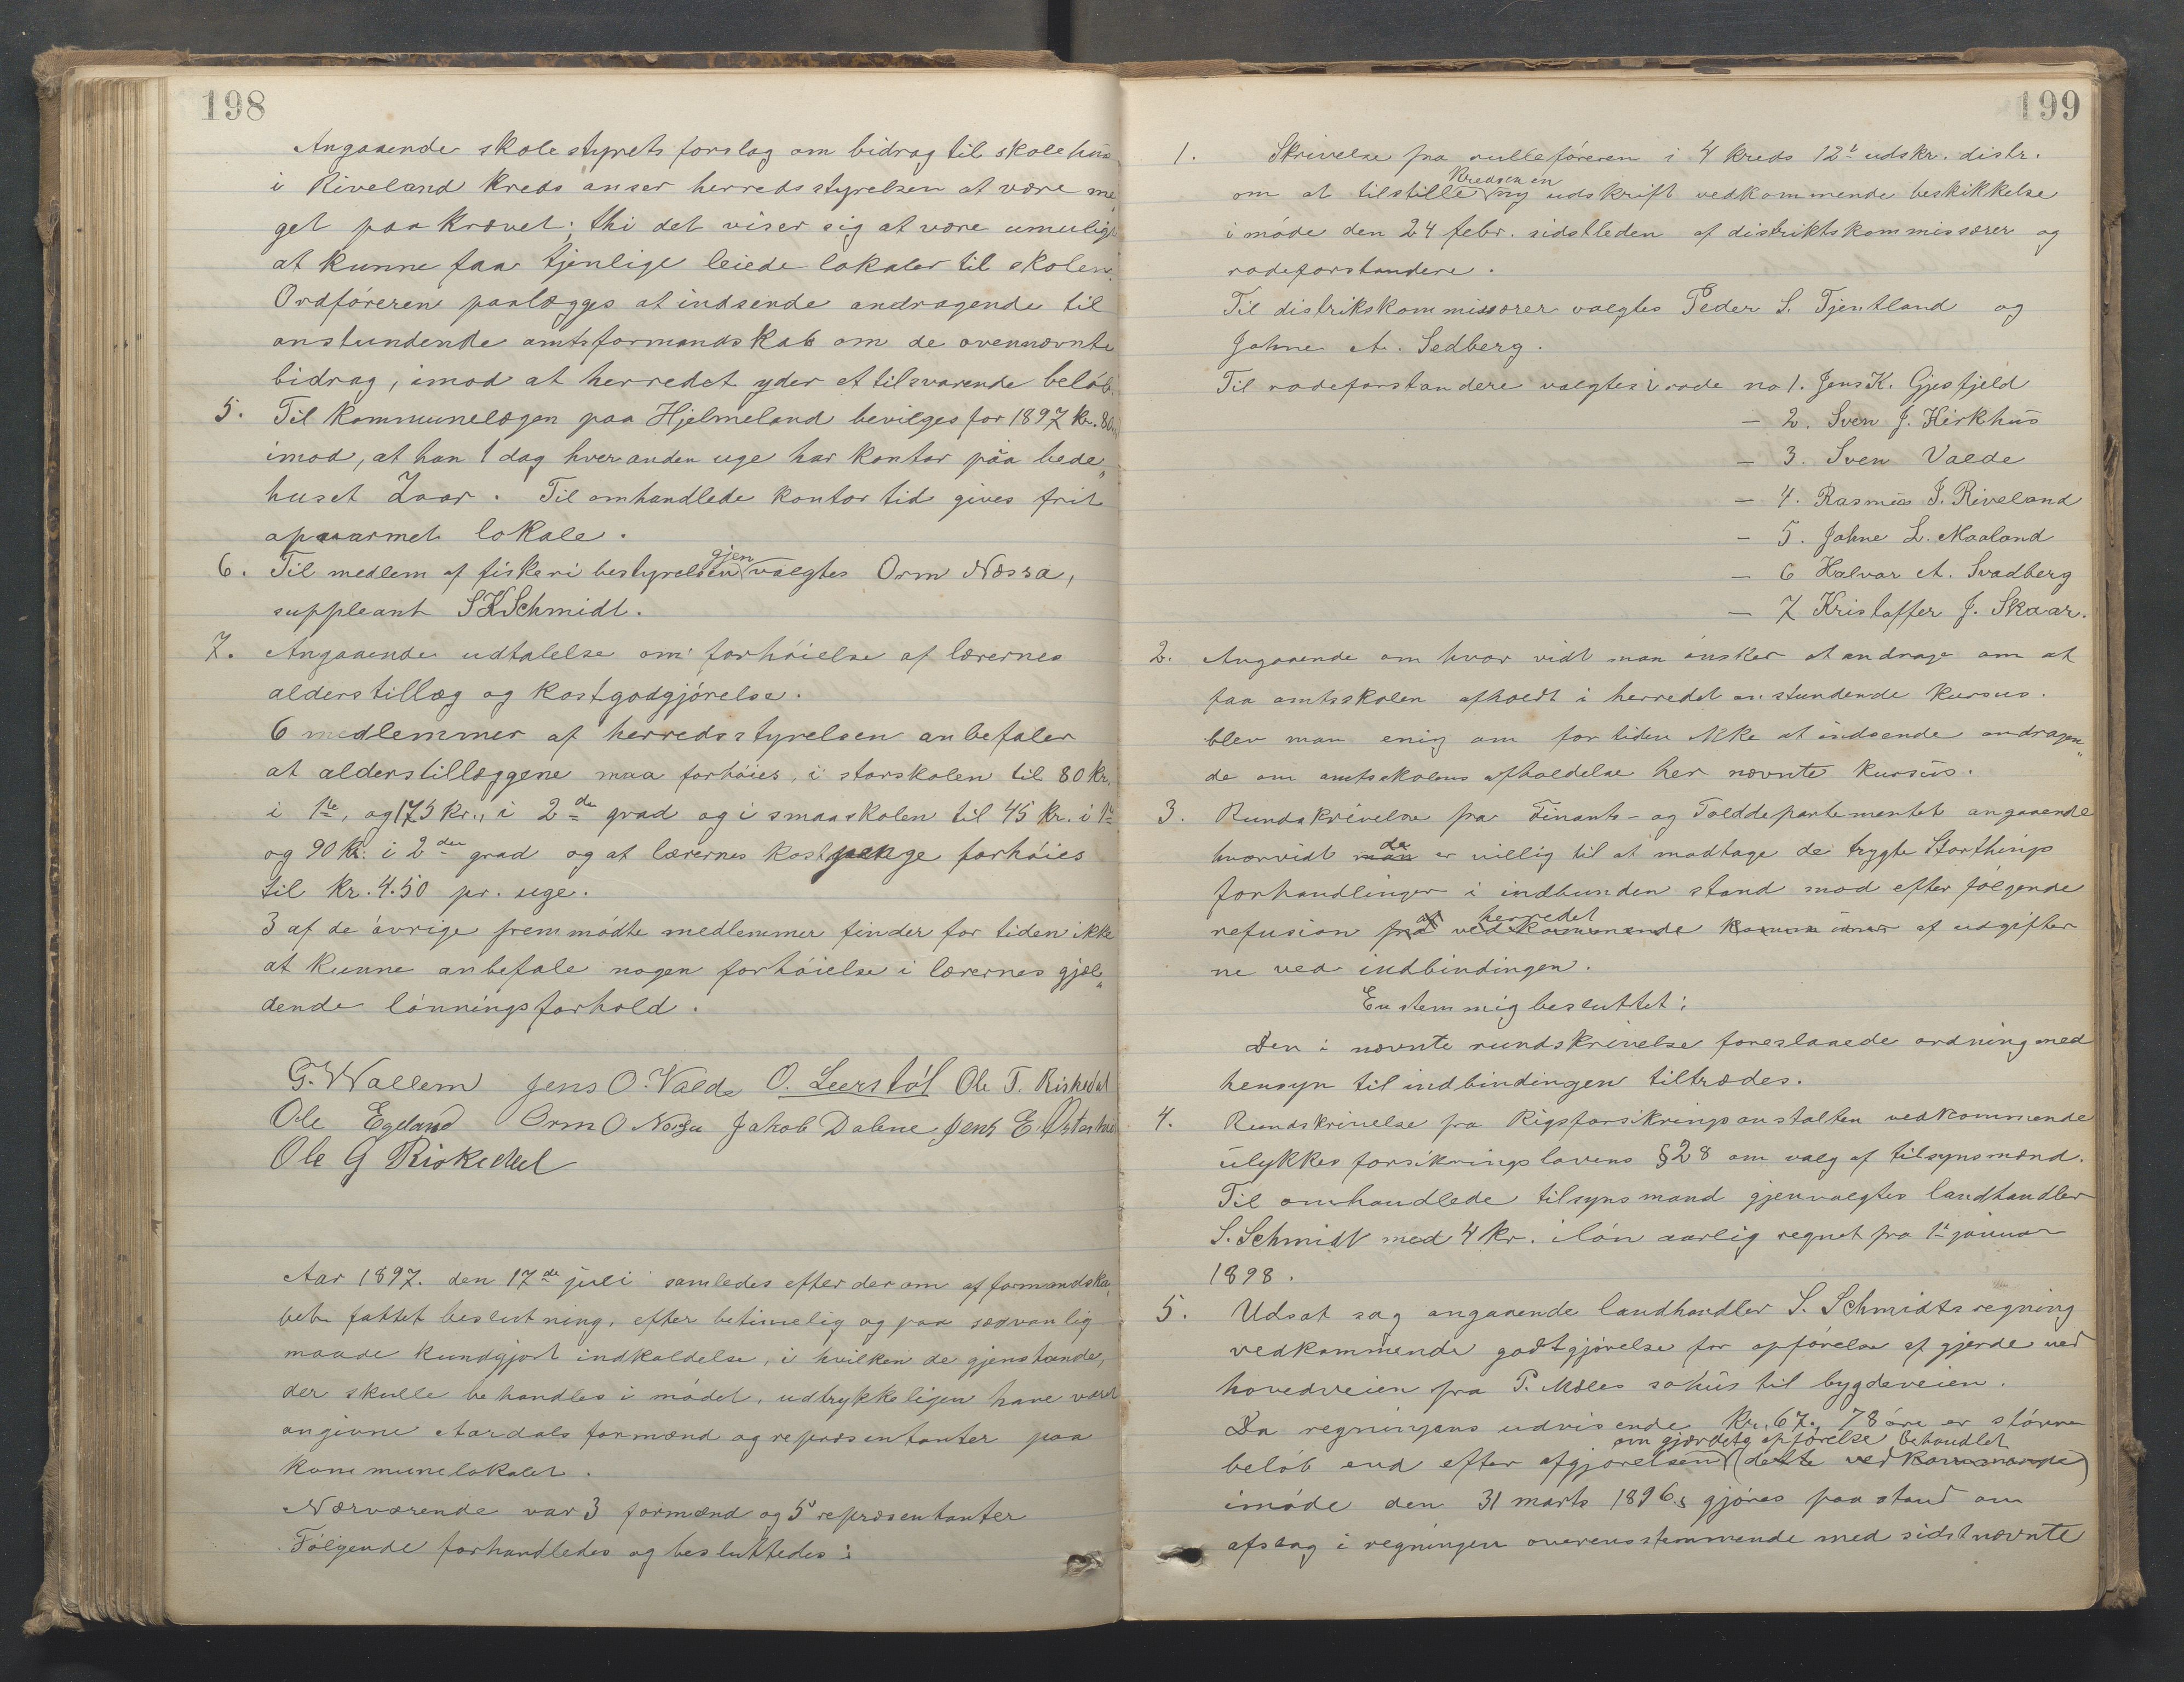 198
Angaaende skolestyrets forslag om bidrag til skolehus
i Riveland kreds anser herredsstyrelsen at være me„
get paakrævet; thi det viser sig at være umuligt
at kunne faa tjenlige leiede lokaler til skolen.
Ordføreren paalægges at indsende andragende til
anstundende amtsformandskab om de ovennævnte
bidrag, imod at herredet yder et tilsvarende beløb.
5. Til kommunelægen paa Hjelmeland bevilges for 1897 kr. 80
imod, at han 1 dag hver anden uge har kontor paa bede„
huset Zoar. Til omhandlede kontortid gives frit
opvarmet lokale.
6. Til medlem af fiskeribestyrelsen gjenvalgtes Orm Nessa,
suppleant S K Schmidt.
7. Angaaende udtalelse om forhøielse af lærernes
alderstillæg og kostgodgjørelse.
6 medlemmer af herredsstyrelsen anbefaler
at alderstillæggene maa forhøies, i storskolen til 80 kr.
i 1ste, og 175 kr., i 2den grad og i smaaskolen til 45 kr. i 1ste
og 90 kr. i 2den grad og at lærernes kostpenge forhøies
til kr. 4.50 pr. uge.
3 af de øvrige fremmødte medlemmer finder for tiden ikke
at kunne anbefale nogen forhøielse i lærernes gjæl„
dende lønningsforhold.
G. Wallem Jens O. Valde O. Leerstøl Ole T. Riskedal
Ole Egeland Orm O Nessa Jakob Dalene Jens E. Østerhus
Ole G Riskedal
Aar 1897. den 17de juli samledes efter derom af formandska„
bet fattet beslutning, efter betimelig og paa sædvanlig
maade kundgjort indkaldelse, i hvilken de gjenstande,
der skulle behandles i mødet, udtrykkeligen have været
angivne Aardals formænd og repræsentanter paa
kommunelokalet.
Nærværende var 3 formænd og 5 repræsentanter
Følgende forhandledes og besluttedes:
199
1. Skrivelse fra rulleføreren i 4 kreds 12te udskr. distr.
kredsen en
om at tilstille ny udskrift vedkommende beskikkelse
i møde den 24 febr. sidstleden af distriktskommissærer og
rodeforstandere.
Til distrikskommissærer valgtes Peder S. Tjentland og
Johne A. Sedberg.
Til rodeforstandere valgtes i rode no 1. Jens K. Gjesfjeld
- 2. Sven J. Kirkhus
- 3. Sven Valde
- 4. Rasmus J. Riveland
- 5. Johne L. Maaland
- 6 Halvar A. Svadberg
- 7 Kristoffer J. Skaar.
2. Angaaende om hvor vidt man ønsker at andrage om at
faa amtsskolen afholdt i herredet anstundende kursus.
blev man enig om for tiden ikke at indsende andragen„
de om amtsskolens afholdelse her nævnte kursus.
3. Rundskrivelse fra Finants- og Tolddepartementet angaaende
da
hvorvidt man er villig til at modtage de trygte Storthings
forhandlinger i indbunden stand mod efter følgende
af herredet
refusion fra vedkommende kommuner af udgifter
ne ved indbindingen.
Enstemmig besluttet:
Den i nævnte rundskrivelse foreslaaede ordning med
hensyn til indbindingen tiltrædes.
4. Rundskrivelse fra Rigsforsikringsanstalten vedkommende
ulykkesforsikringslovens § 28 om valg af tilsynsmænd.
Til omhandlede tilsynsmand gjenvalgtes landhandler
S. Schmidt med 4 kr. i løn aarlig regnet fra 1te januar
1898.
5. Udsat sag angaaende landhandler S. Schmidts regning
vedkommende godtgjørelse for opførelse af gjerde ved
hovedveien fra P. Mæles søhus til bygdeveien.
Da regningens udvisende kr. 67., 78 øre er større
om gjærdets opførelse behandlet
beløb end efter afgjørelsen (dette vedkommende)
i møde den 31 marts 1896, gjøres paastand om
afslag i regningen overensstemmende med sidstnævnte